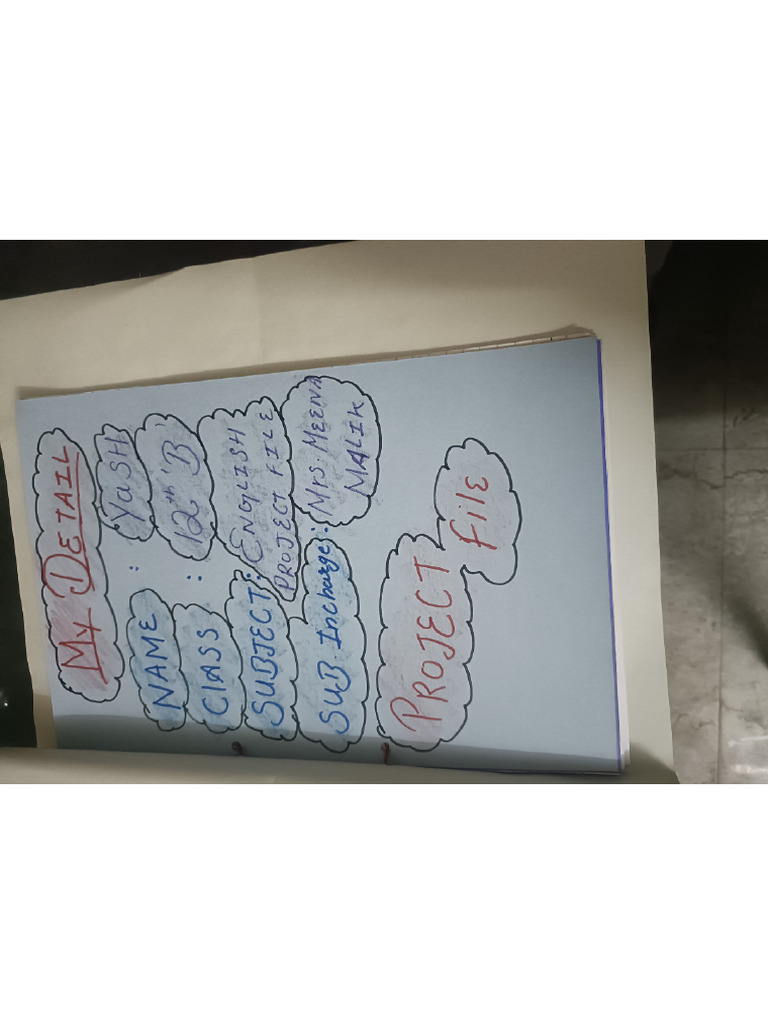 My DETAIL
NAME : YaSH
ClASS : 12th B
SUBJECT : ENGLISH
PROJECT FILE
SUB Incharge : Mrs. MEENA
MALIK
PROJECT
filE